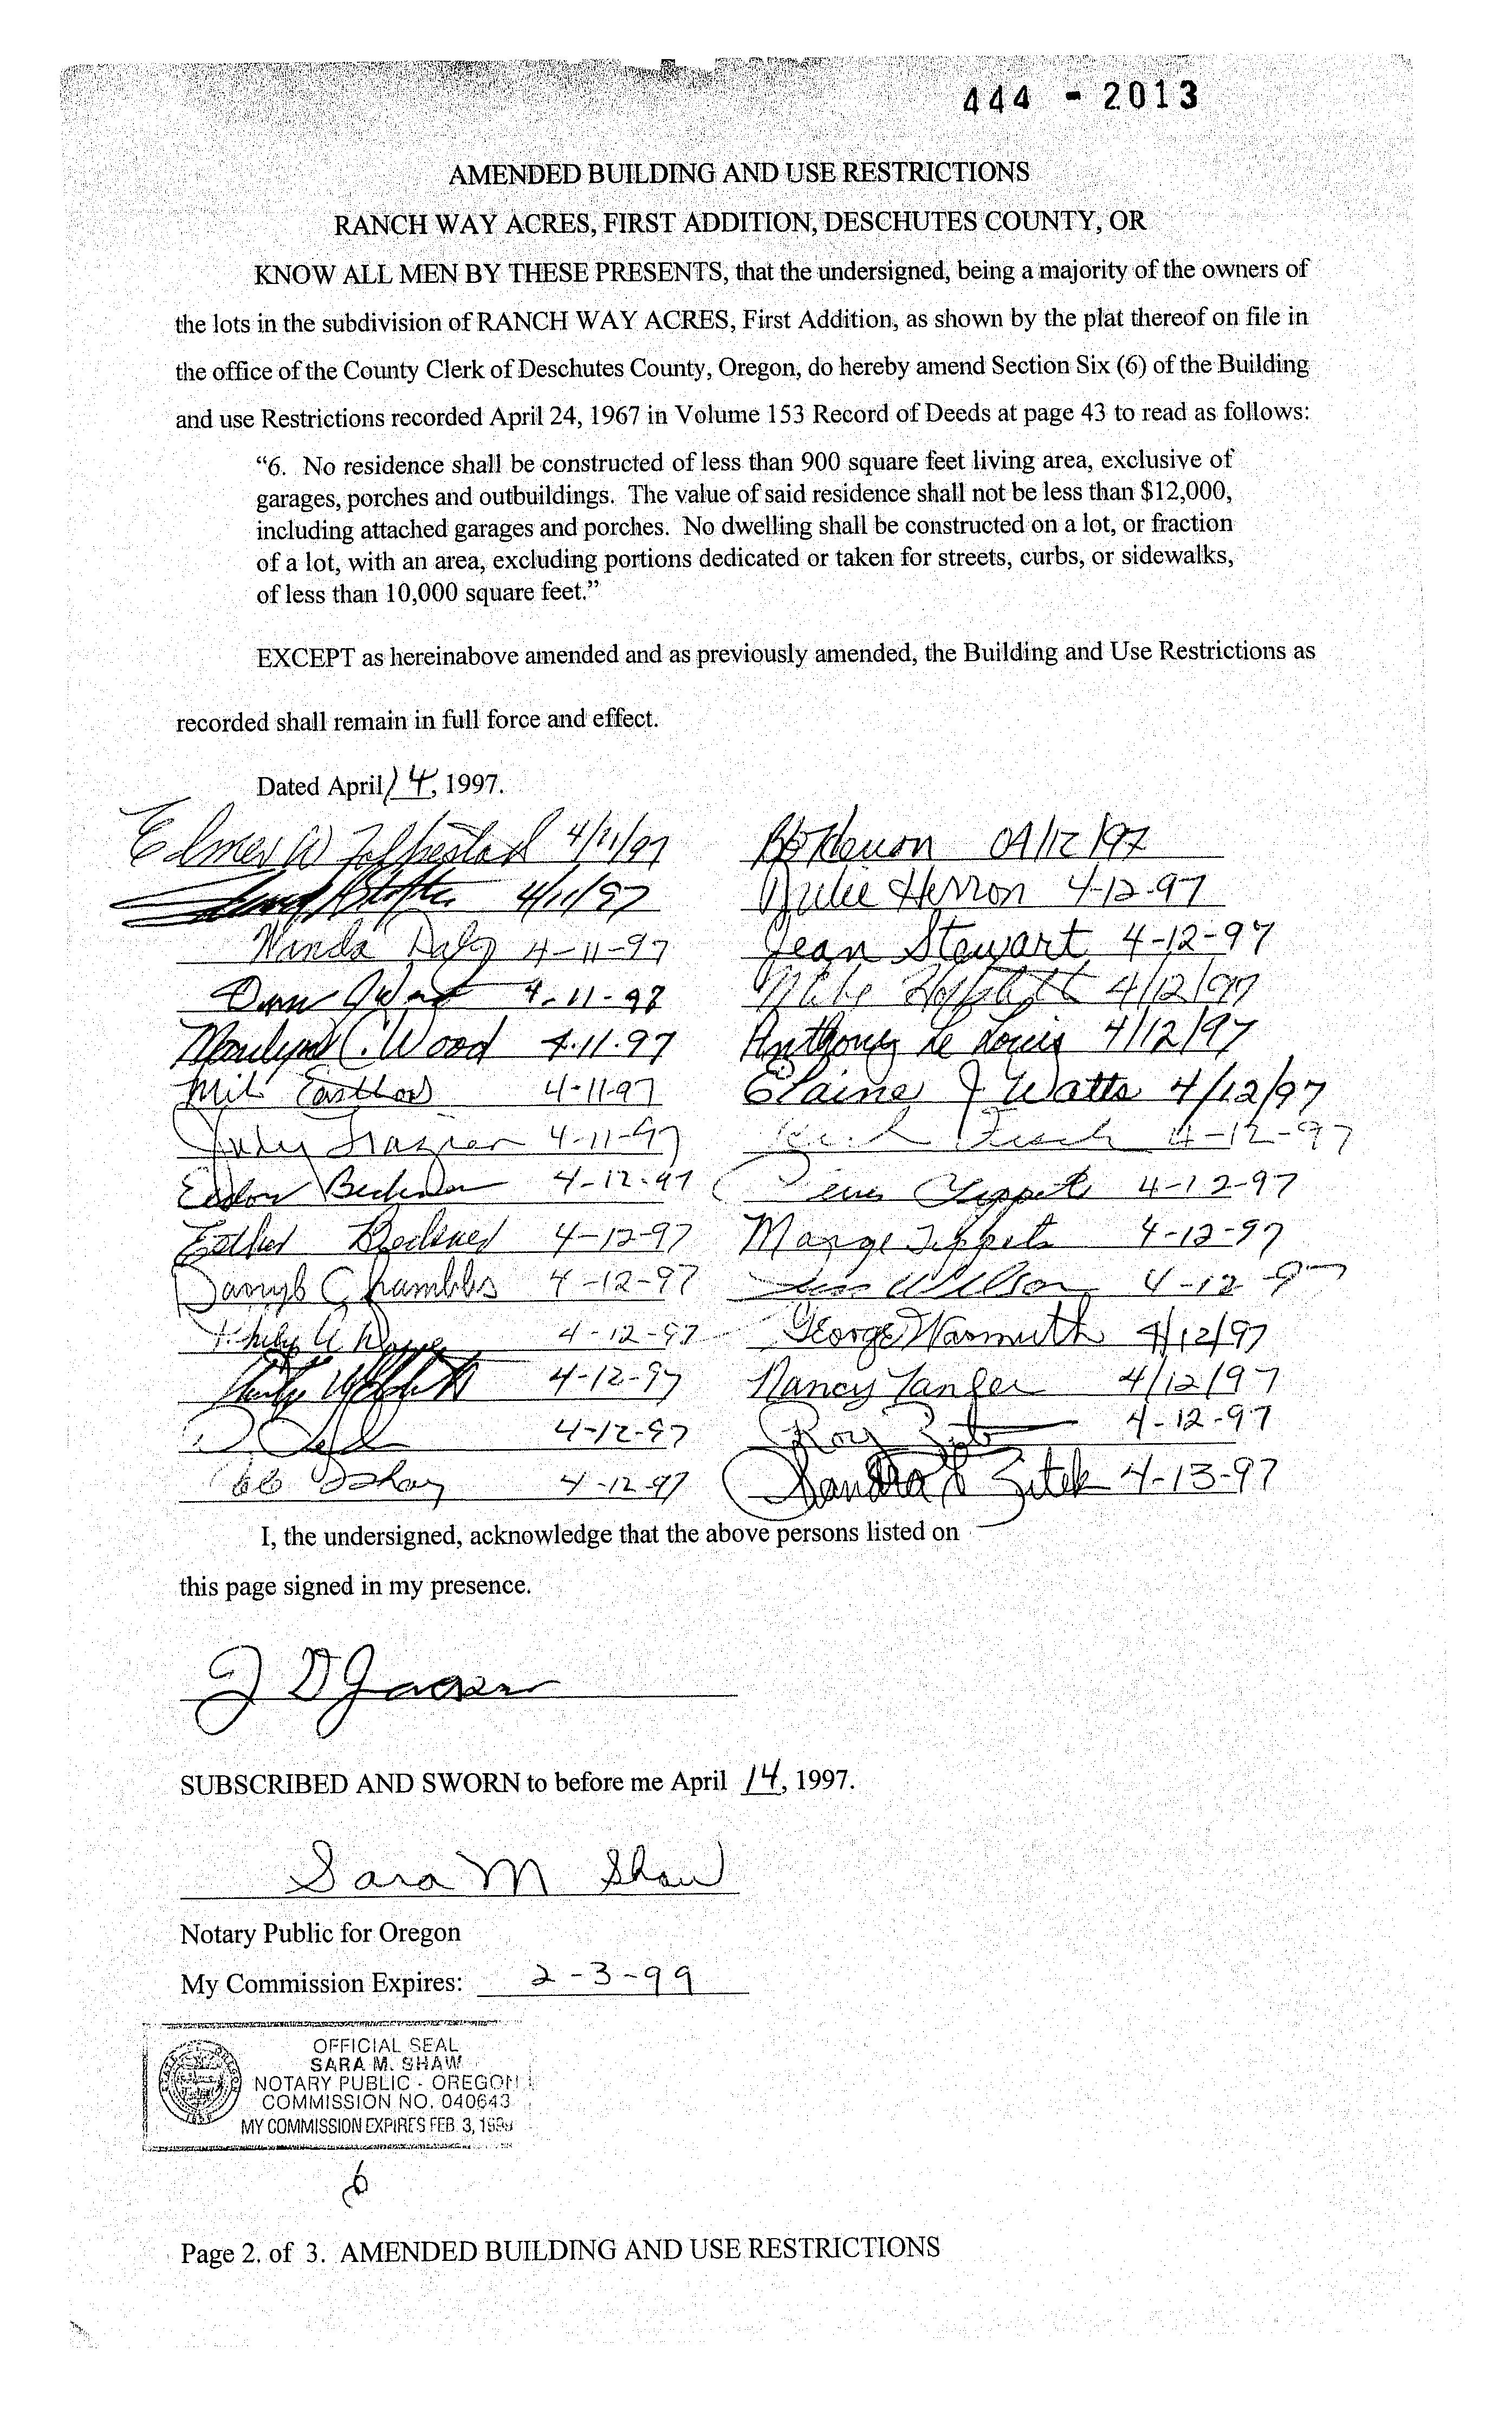 444 - 2013
AMENDED BUILDING AND USE RESTRICTIONS
RANCH WAY ACRES, FIRST ADDITION, DESCHUTES COUNTY, OR
KNOW ALL MEN BY THESE PRESENTS, that the undersigned, being a majority of the owners of
the lots in the subdivision of RANCH WAY ACRES, First Addition, as shown by the plat thereof on file in
the office of the County Clerk of Deschutes County, Oregon, do hereby amend Section Six (6) of the Building
and use Restrictions recorded April 24, 1967 in Volume 153 Record of Deeds at page 43 to read as follows:
“6. No residence shall be constructed of less than 900 square feet living area, exclusive of
garages, porches and outbuildings. The value of said residence shall not be less than $12,000,
including attached garages and porches. No dwelling shall be constructed on a lot, or fraction
of a lot, with an area, excluding portions dedicated or taken for streets, curbs, or sidewalks,
of less than 10,000 square feet.”
EXCEPT as hereinabove amended and as previously amended, the Building and Use Restrictions as
recorded shall remain in full force and effect.
Dated April 14, 1997.
Elmer W 4/11/97 04/12/97
4/11/97 Julie Herron 4-12-97
4-11-97 Jean Stewart 4-12-97
4-11-97 Mike 4/12/97
Marilyn C. Wood 4.11.97 Anthony Le Louis 4/12/97
4-11-97 Elaine J Watts 4/12/97
4-11-97 4-12-97
4-12-97 4-12-97
4-12-97 Marge Tippets 4-12-97
Chambles 4-12-97 Willson 4-12-97
4-12-97 George Warmuth 4/12/97
4-12-97 Nancy 4/12/97
4-12-97 Roy 4-12-97
4-12-97 Sandra Zitek 4-13-97
I, the undersigned, acknowledge that the above persons listed on
this page signed in my presence.
J D
SUBSCRIBED AND SWORN to before me April 14, 1997.
Sara M Shaw
Notary Public for Oregon
My Commission Expires: 2-3-99
OFFICIAL SEAL
SARA M. SHAW
NOTARY PUBLIC - OREGON
COMMISSION NO. 040643
MY COMMISSION EXPIRES FEB. 3, 1999
6
Page 2. of 3. AMENDED BUILDING AND USE RESTRICTIONS